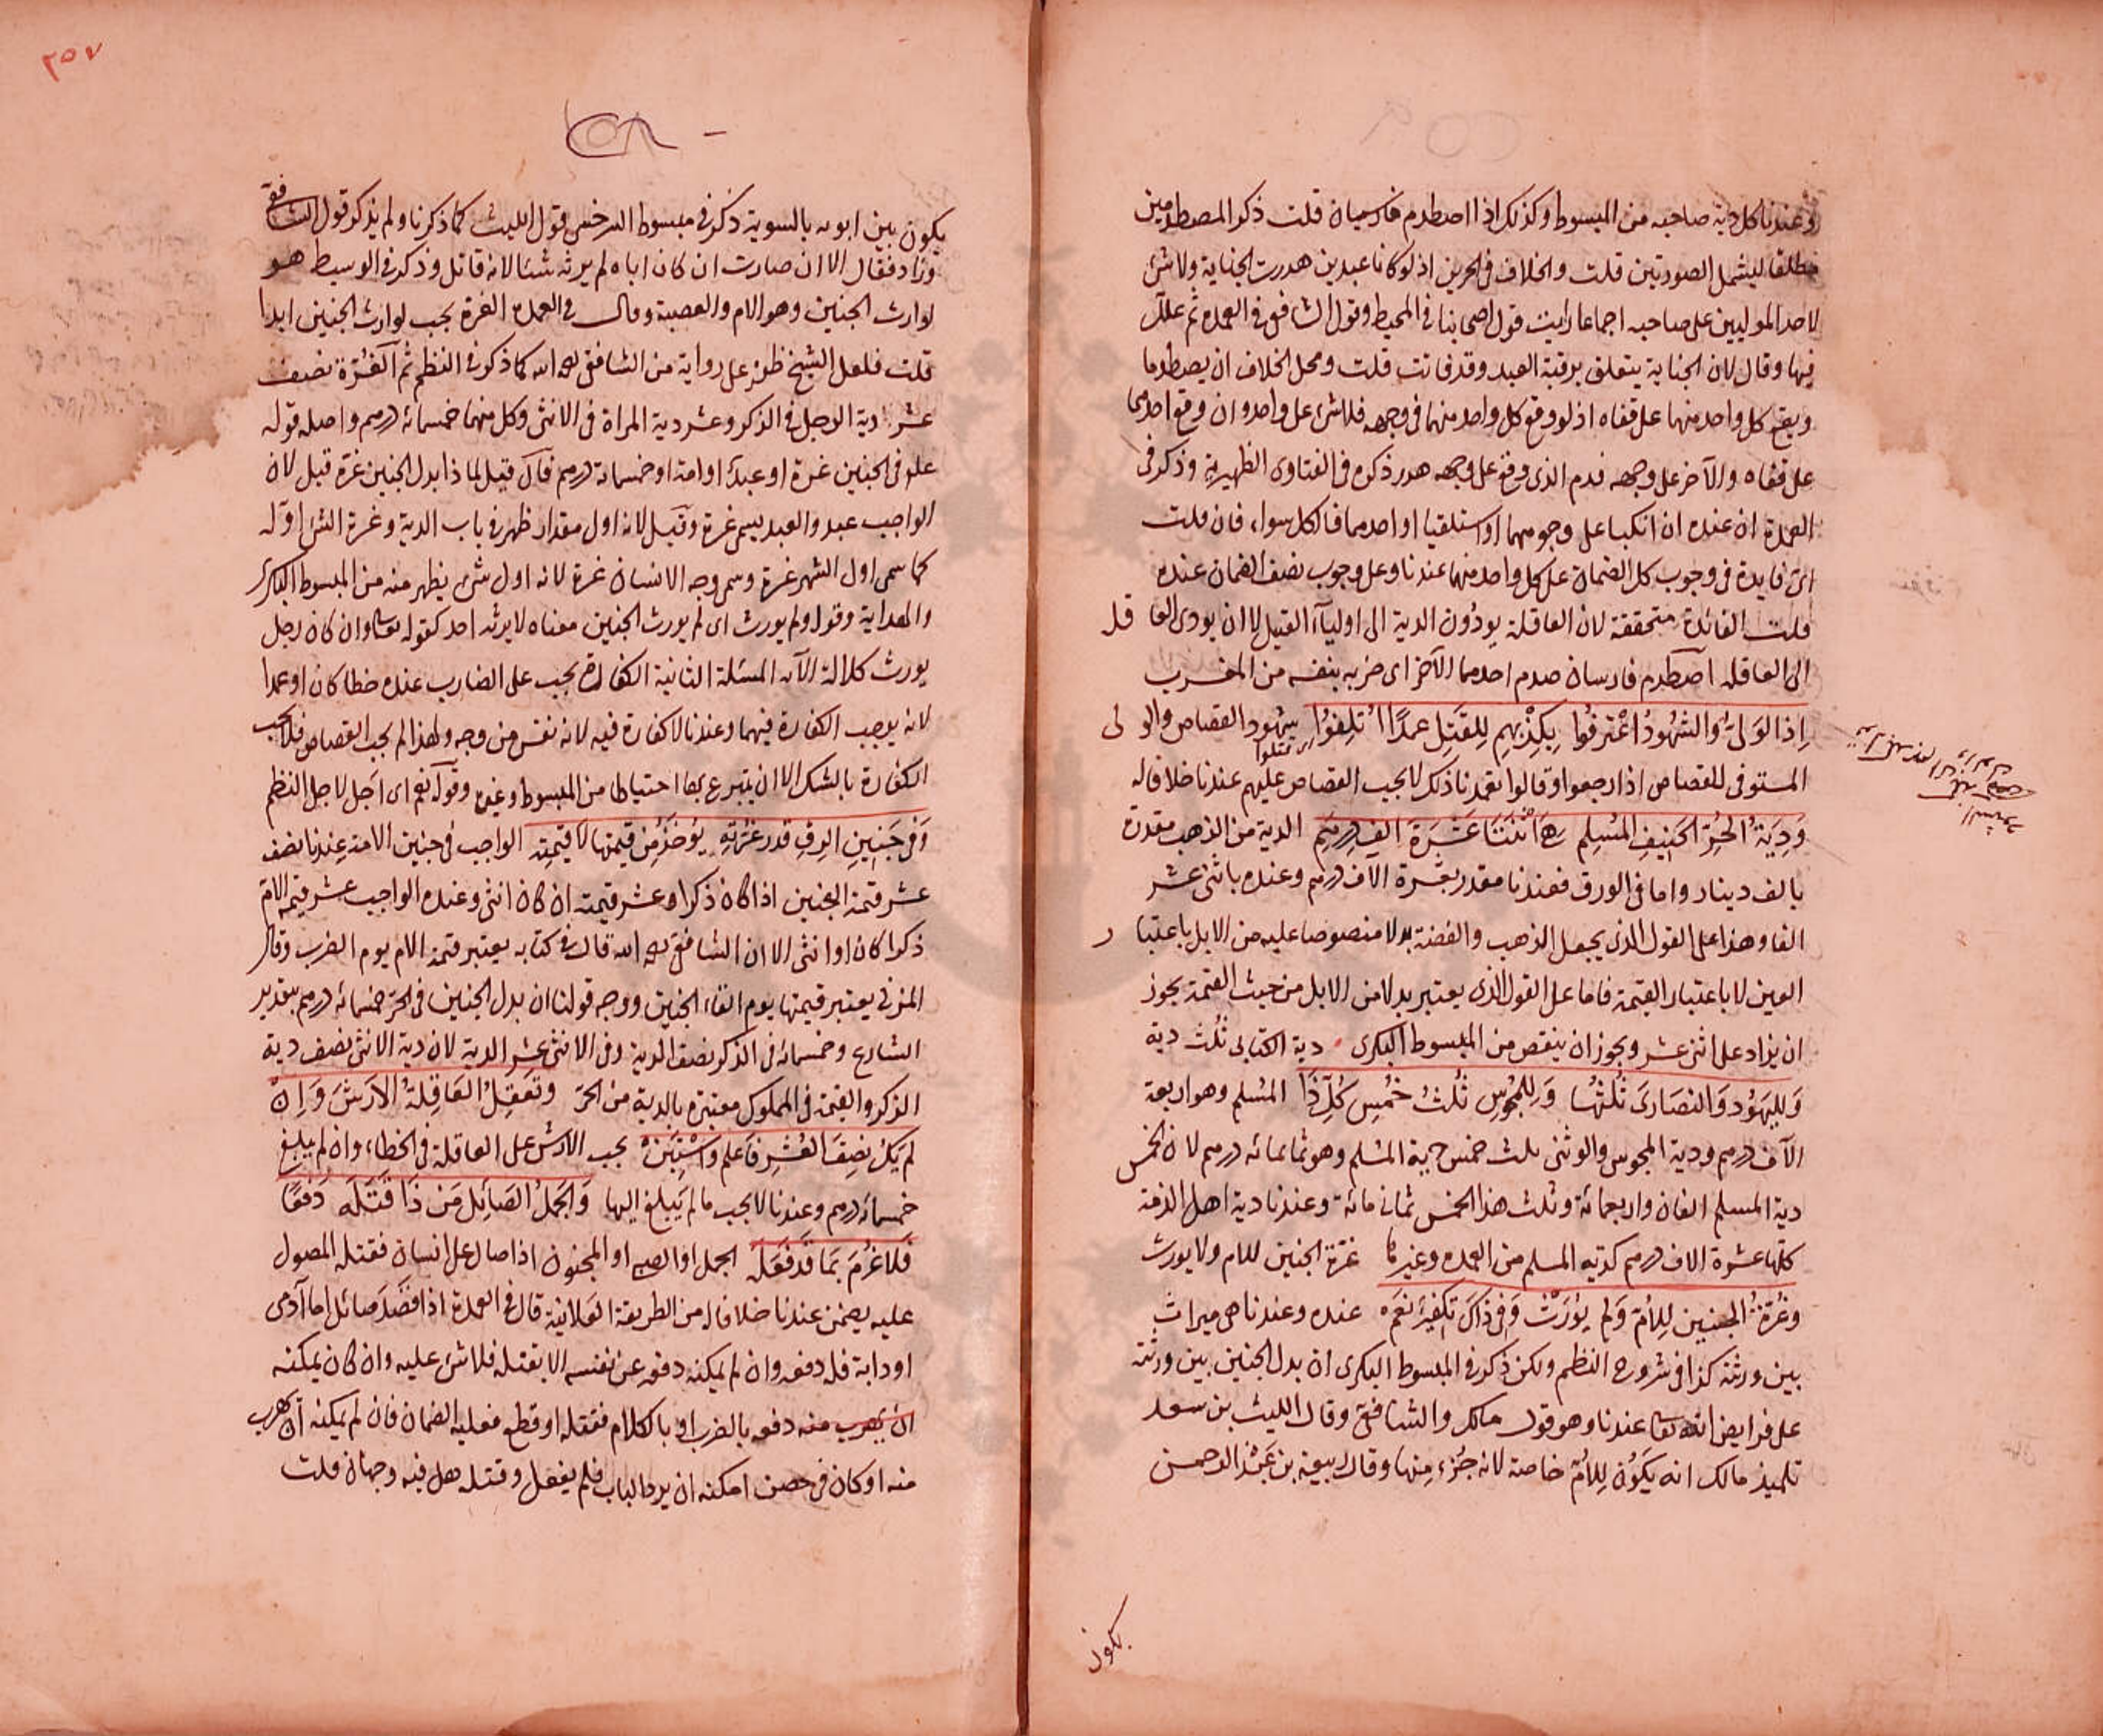 وعندنا كل دية صاحبه من المبسوط وكذلك اذا اصطدم فارسان قلت ذكر المصطدمين
مطلقا ليشمل الصورتين قلت والخلاف في الحرين اذ لو كانا عبدين هدرت الجناية ولا شئ
لاحد الموليين على صاحبه اجماعا رايت قول اصحابنا في المحيط وقول الشافعي في العمدة ثم علل
فيها وقال لان الجناية يتعلق برقبة العبد وقد فاتت قلت ومحل الخلاف ان يصطدما
ويقع كل واحد منهما على قفاه اذ لو وقع كل واحد منهما في وجهه فلا شئ على واحد وان وقع احدهما
على قفاه والآخر على وجهه فدم الذى وقع على وجهه هدر ذكره في الفتاوى الظهيرية وذكر في
العمدة ان عنده ان انكبا على وجوههما او استلقيا او احدهما فالكل سواء فان قلت
اى فايدة في وجوب كل الضمان على كل واحد منهما عندنا وعلى وجوب نصف الضمان عنده
قلت الفائدة متحققة لان العاقلة يودون الدية الى اوليآء القتيل لا ان يودى العا قلـ
الى العاقله اصطدم فارسان صدم احدهما الآخر اى ضربه بنفسه من المغرب
اِذا الوَلىُّ والشهُودُ اعْترفُوا بِكِذْبِهِم لِلقَتِل عمدًا اُتلِفُوا شهود القصاص والو لى
اى قتلوا
المستوفى للقصاص اذا رجعوا وقالوا تعمدنا ذلك لا يجب القصاص عليهم عندنا خلافا له
وَدِيَةُ الحُرِّ الحَنِيفِ المُسْلِمِ هي اثْنَتَا عَشَرَةَ الفِ دِرهَم الدية من الذهب مقدرة
بالف دينار واما في الورق فعندنا مقدر بعشرة الآف درهم وعنده باثنى عشر
الفا وهذا على القول الذى يجعل الذهب والفضة بدلا منصوصا عليه من الابل باعتبا ر
العين لا باعتبار القيمة فاما على القول الذى يعتبر بدلا من الابل من حيث القيمة يجوز
ان يزاد على اثنى عشر ويجوز ان ينقص من المبسوط البكرى دية الكتابى ثُلُث دية
وَلليَهُودِ وَالنصَارىَ ثُلْثُهَا وَلِلمجُوسِ ثُلثُ خُمْسِ كُلِّ ذَا المُسْلم وهو اربعة
الآف درهم ودية المجوس والوثنى ثلث خمس دية المسْلم وهو ثمانمائه درهم لان خمس
دية المسلم الفان واربعمائة وثلث هذا الخمس ثمانى مائة وعندنا دية اهل الذمة
كلها عشرة الاف درهم كدية المسلم من العمدة وغيرها غرّة الجنين للام ولا يورث
وغُرّةُ الجَنينِ لِلأمّ وَلم يُورَثْ وَفي ذاكَ تكفِيرٌ نعَم عنده وعندنا هى ميراث
بين ورثته كذا في شروح النظم ولكن ذكر في المبسوط البكرى ان بدل الجنين بين ورثته
على فرايض الله تعا عندنا وهو قول مالك والشافعى وقال الليث بن سعد
تلميذ مالك انه يَكُون لِلأمّ خاصة لانه جُزء مِنها وقال ربيعة بن عَبْد الرحمن
يكون
يكون بين ابويه بالسوية ذكر في مبسوط السرخسى قول الليث كما ذكرنا ولم يذكر قول الشافعى
وزاد فقال الا ان صارت ان كان اباه لم يرثه شئا لانه قاتل وذكر في الوسيط هو
لوارث الجنين وهو الام والعصبة وقال في العمدة الغرة يجب لوارث الجنين ابدا
قلت فلعل الشيخ ظفر على رواية من الشافعى رحمه الله كما ذكر في النظم ثم الغُرّة نصف
عشر دية الرجل في الذكر وعشر دية المراة في الانثى وكل منهما خمسمائة درهم واصله قوله
علم في الجنين غرة او عبد او امة او خمسمائة درهم فان قيل لما ذا بدل الجنين غرّة قيل لان
الواجب عبد والعبد يسمى غرة وقيل لانه اول مقدار ظهر في باب الدية وغرة الشئ اوّله
كما سمى اول الشهر غرة وسمى وجه الانسان غرة لانه اول شئ يظهر منه من المبسوط البكرى
والهداية وقوله ولم يورث اى لم يورث الجنين معناه لا يرثه احد كقوله تعا وان كان رجل
يورث كلالة الآية المسئلة الثانية الكفارة يجب على الضارب عنده خطا كان او عمدا
لانه يوجب الكفارة فيهما وعندنا لا كفارة فيه لانه نفس من وجه ولهذا لم يجب القصاص فلا يجب
الكفارة بالشك الا ان يتبرع بها احتياطا من المبسوط وغيره وقوله نعم اى اجَل لاجل النظم
وَفي جَنينِ الرِقِ قدرُ غرّتِهِ يؤخَذُ مِن قيمتها لا قيمتِه الواجب في جنين الامة عندنا نصف
عشر قيمة الجنين اذا كان ذكرا وعشر قيمته ان كان انثى وعنده الواجب عشر قيمة الامّ
ذكرا كان او انثى الا ان الشافعى رحمه الله قال في كتابه يعتبر قيمة الام يوم الضرب وقال
المزنى يعتبر قيمتها يوم القاء الجنين ووجه قولنا ان بدل الجنين في الحرّ خمسمائه درهم بتقدير
الشارع وخمسمائه في الذكر نصف الدية وفي الانثى عشر الدية لان دية الانثى نصف دية
الذكر والقيمة في المملوك معتبرة بالدية من الحرّ وتَعقِلُ العَاقِلةُ الأرَشَ وَاِنْ
لم يَكُ نِصِفَ العُشْرِ فَاعلم واسْتَبِنْ يجب الارش على العاقلة في الخطاء وان لم يبلغ
خمسمائه درهم وعندنا لا يجب ما لم يَبلغ اليها وَالجَملُ الصَائِل مَن ذَا قَتَلَه دَفعًا
فَلا غُرْمَ بمَا قدْ فعَلَهْ الجمل او الصبى او المجنون اذا صال على انسان فقتله المصول
عليه يضمن عندنا خلافا له من الطريقة العَلائية قال في العمدة اذا قصَدَ صائل اما آدمى
او دابة فله دفعه وان لم يمكنه دفعه عن نفسه الا بقتله فلا شئ عليه وان كان يمكنه
ان يهرب منه دفعه بالضرب او بالكلام فقتله او قطع فعليه الضمان فان لم يمكنه ان يهرب
منه او كان في حصن امكنه ان يرد الباب فلم يفعل وقتله هل فيه وجهان قلت
٢٥٧